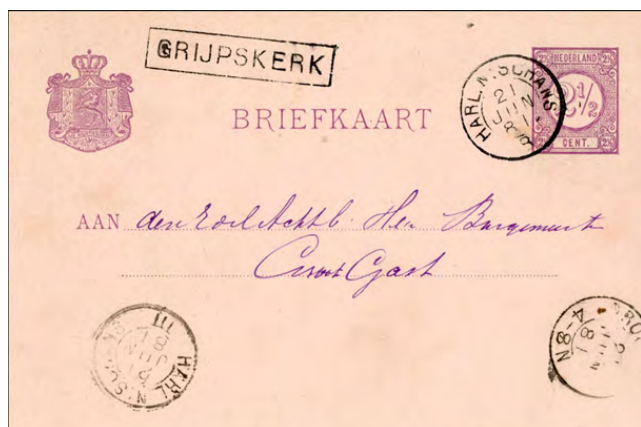 GRIJPSKERK
NEDERLAND
2½
CENT.
HARL.N.SCHANS
21
JUN
81
BRIEFKAART
AAN den EdelAchtb. Heer Burgemeest
Groote Gast
HARL.N.SCHANS
21
JUN
81
III
4-8N